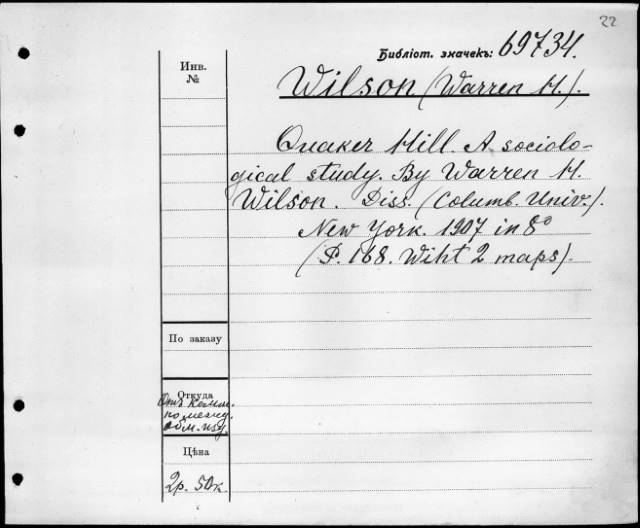 22
Библіот. значекъ: 69734.
Инв.
№
Wilson (Warren H.).
Quaker Hill. A sociolo-
gical study. By Warren H.
Wilson. Diss. (Columb. Univ.).
New York. 1907 in 8°
(P. 168. Wiht 2 maps).
По заказу
Откуда
Отъ Комм.
по межд.
обм. изд.
Цѣна
2р. 50к.